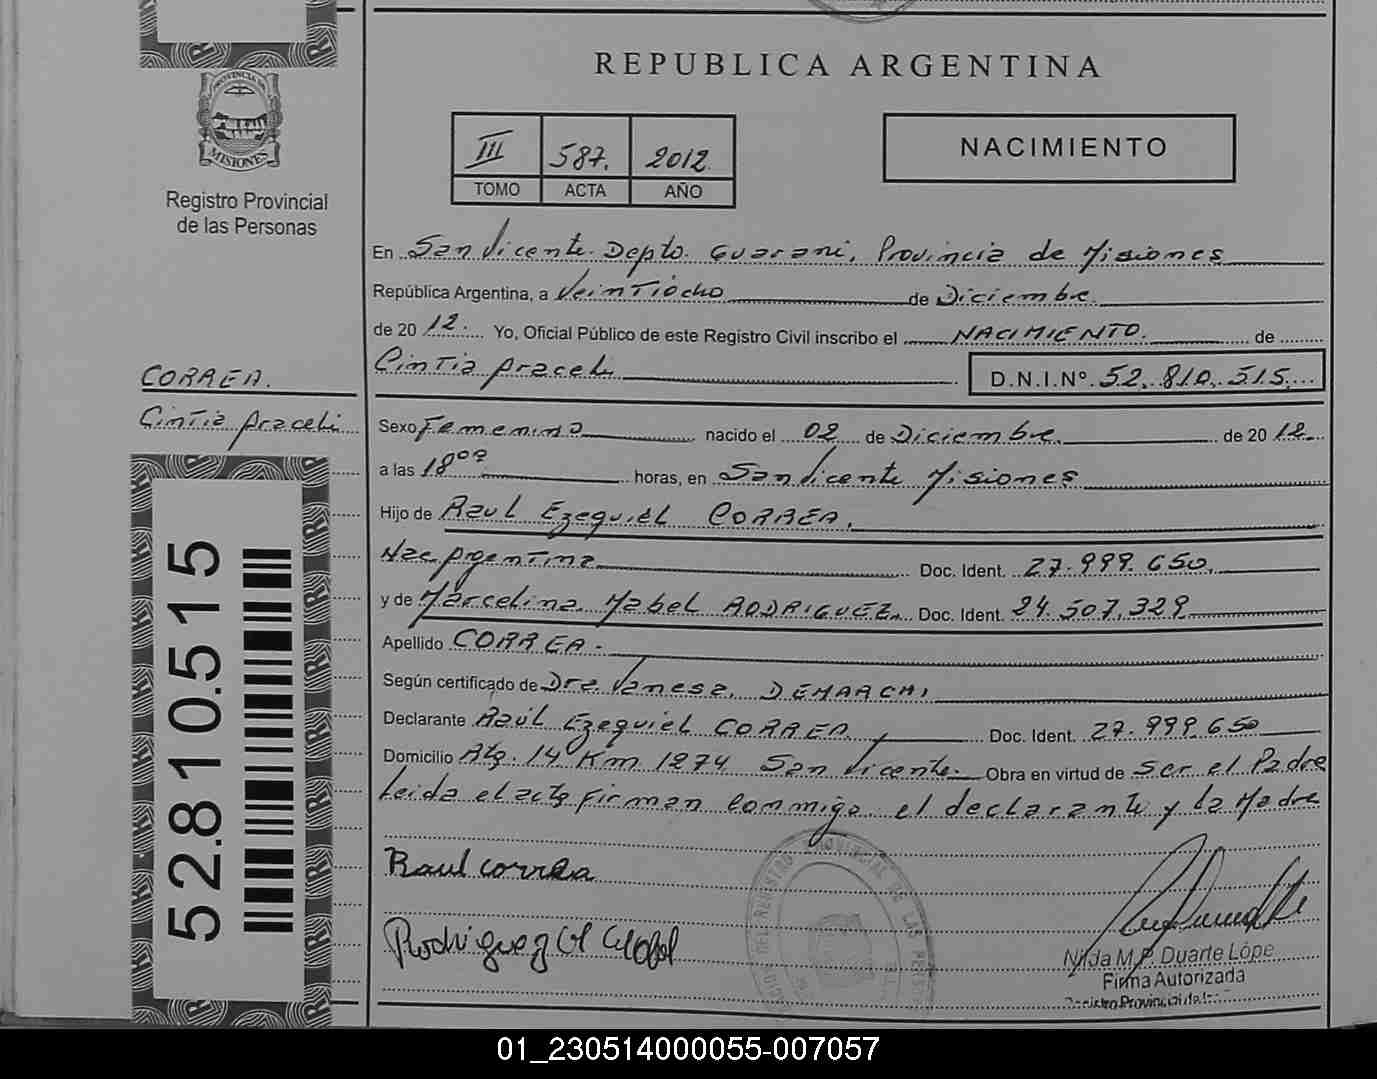 PROVINCIA DE
MISIONES
Registro Provincial
de las Personas
REPUBLICA ARGENTINA
III 587. 2012.
TOMO ACTA AÑO
NACIMIENTO
En San Vicente Depto. Guarani, Provincia de Misiones
República Argentina, a Veintiocho de Diciembre
de 20 12. Yo, Oficial Público de este Registro Civil inscribo el NACIMIENTO. de
Cintia Araceli D.N.I.Nº 52.810.515
CORREA.
Cintia Araceli
Sexo Femenino nacido el 02 de Diciembre de 20 12
a las 18 horas, en San Vicente Misiones
Hijo de Raul Ezequiel CORREA.
Nac. Argentina Doc. Ident. 27.999.650.
y de Marcelina Mabel RODRIGUEZ Doc. Ident. 24.507.329
Apellido CORREA.
Según certificado de Dra. Vanesa DEMARCHI
Declarante Raúl Ezequiel CORREA Doc. Ident. 27.999.650
Domicilio Km 1274 San Vicente. Obra en virtud de Ser el Padre
Leida el acta firman conmigo el declarante y la Madre
52.810.515
Raul correa
Rodriguez
Nilda M.P. Duarte Lópe
Firma Autorizada
Registro Provincial de las
01_230514000055-007057